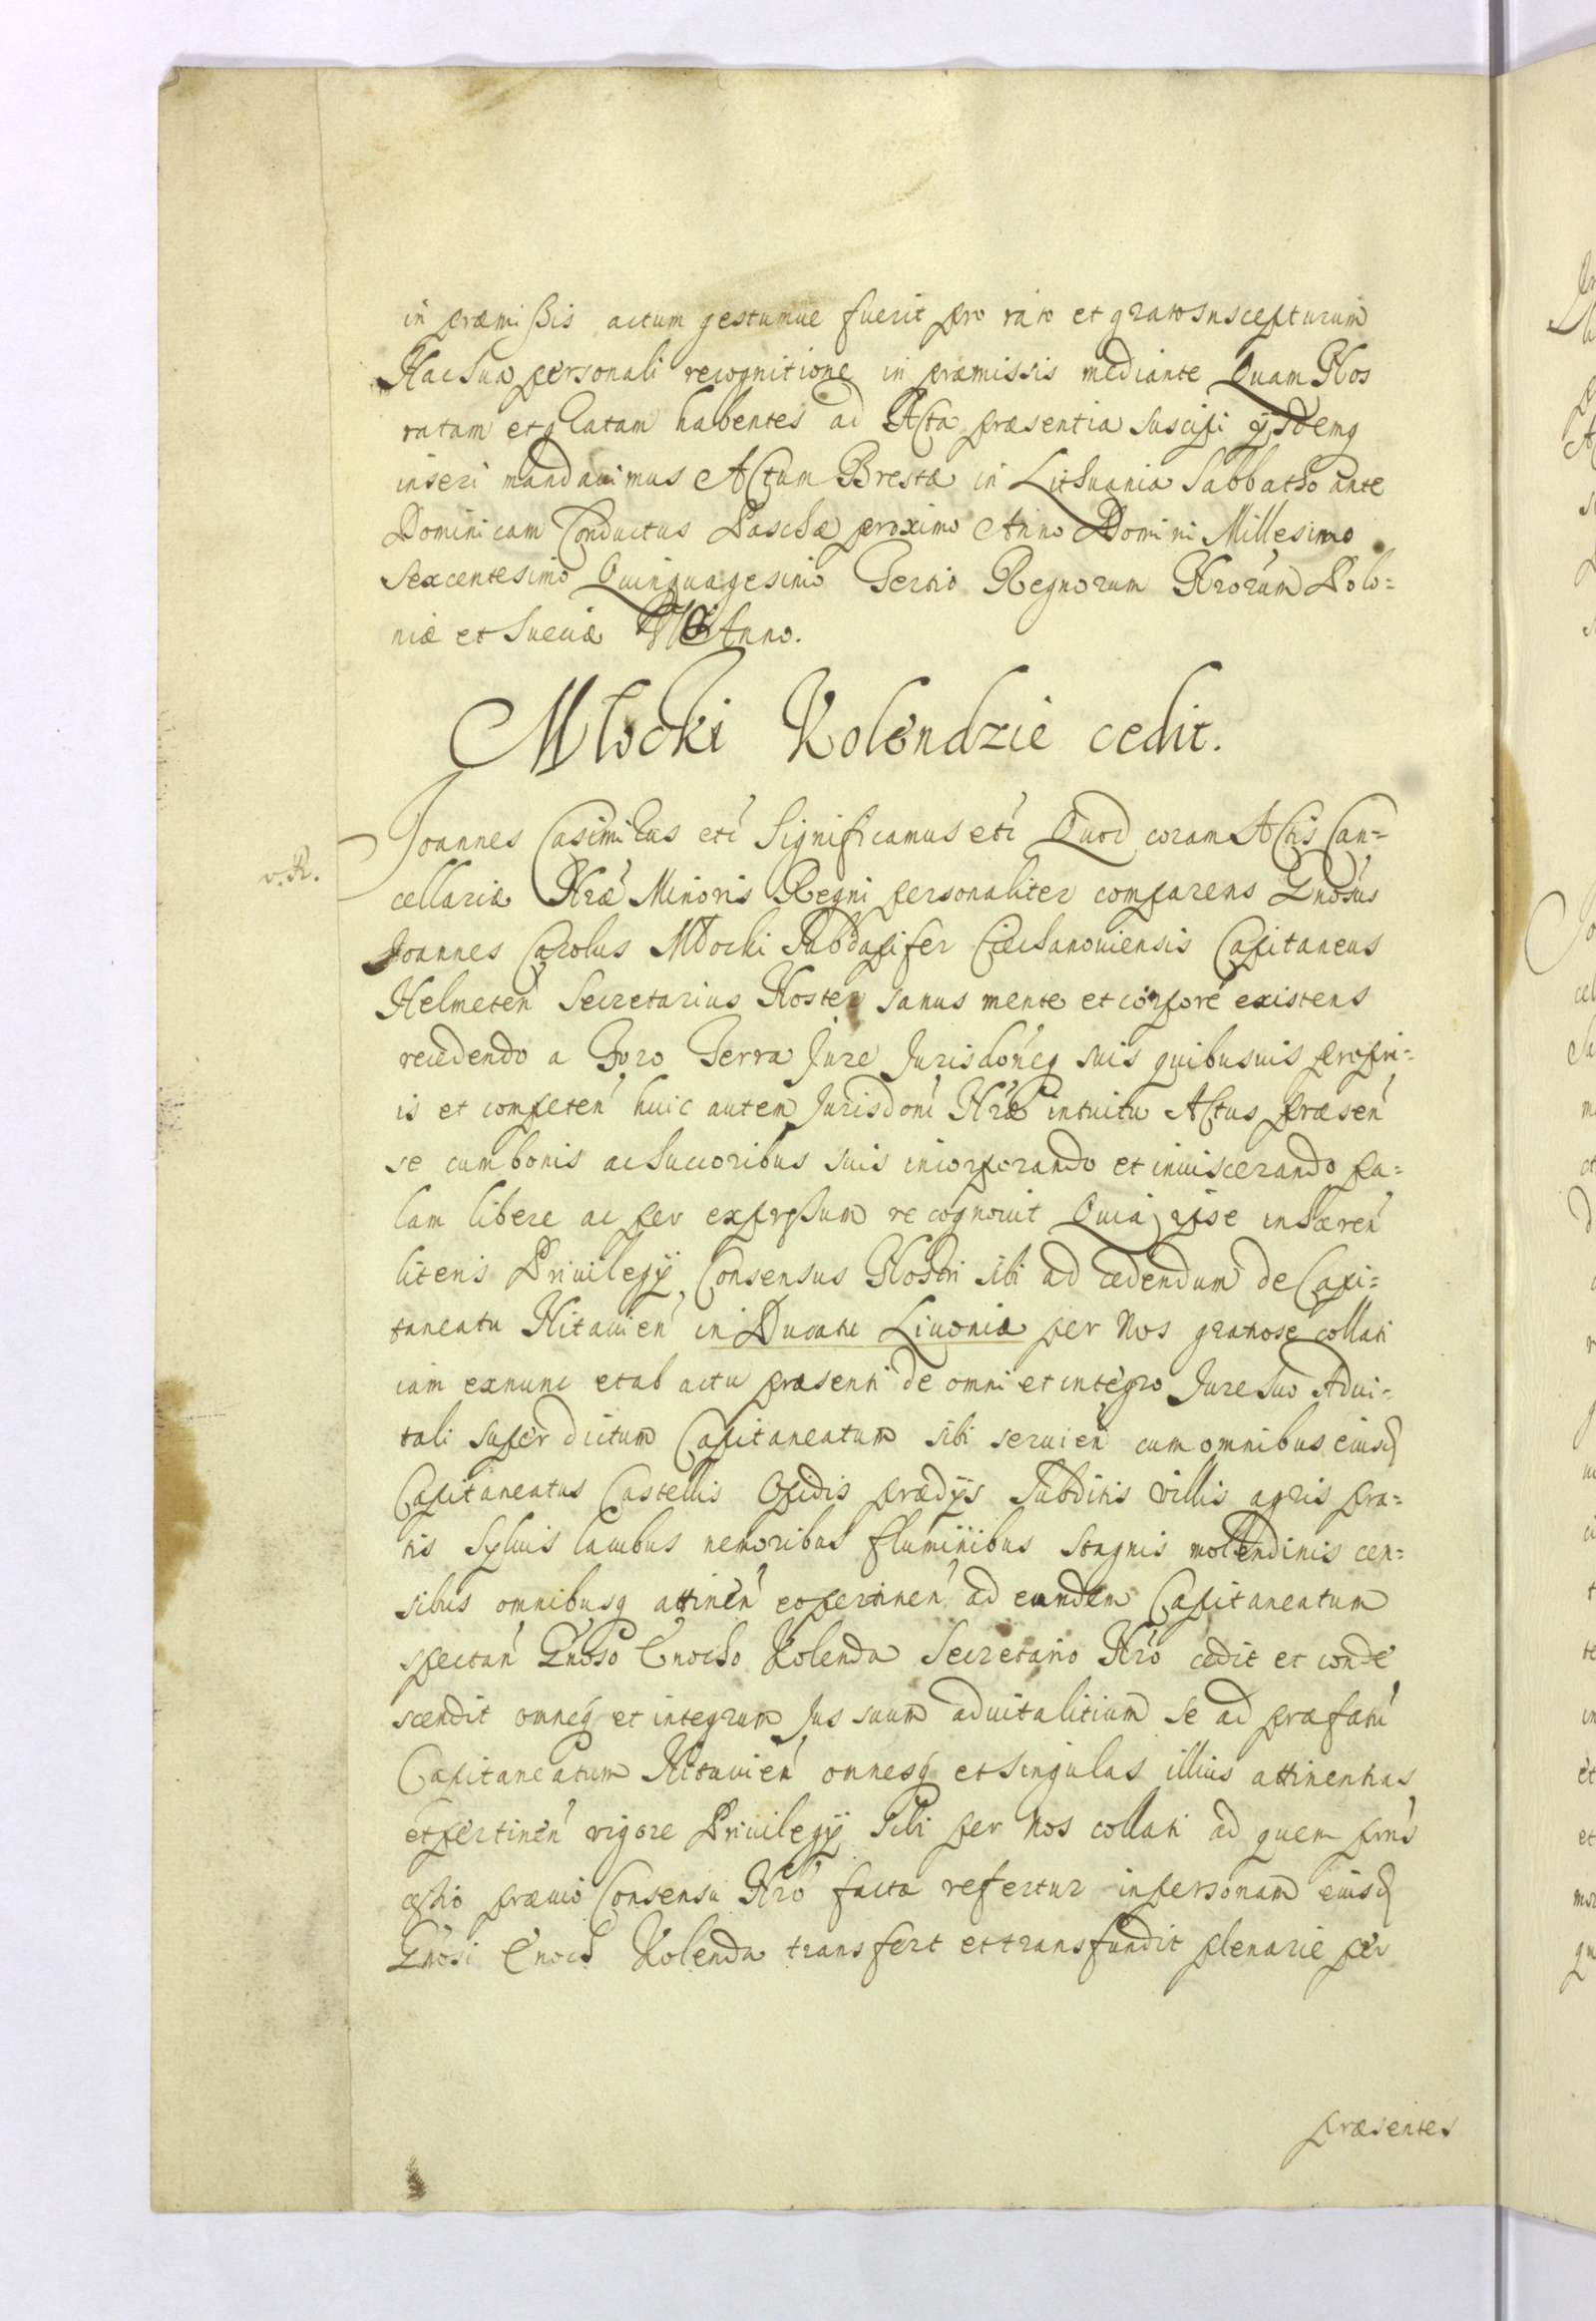 in præmißis actum gestumue fuerit pro rato et grato suscepturum
Hac sua personali recognitione in præmissis mediante Quam Nos
ratam et gratam habentes ad Acta præsentia suscipi ijsdemq
inseri mandauimus Actum Brestæ in Lithuania Sabbatho ante
Dominicam Conductus Paschæ proximo Anno Domini Millesimo
Sexcentesimo Quinquagesimo Tertio Regnorum Nrorum Polo=
niæ et Sueciæ Anno.
Młocki Kolendzie cedit.
Joannes Casimirus etc Significamus etc Quod coram Actis Can=
v. R.
cellariæ Nræ Minoris Regni personaliter comparens Gnosus
Joannes Carolus Młocki Subdapifer Ciechanouiensis Capitaneus
Helmeten Secretarius Noster sanus mente et corpore existens
recedendo a Foro Terra Jure Jurisdoneq suis quibusuis propri=
is et competen huic autem Jurisdoni Nræ intuitu Actus præsen
se cum bonis ac Succoribus suis incorporando et inuiscerando pa=
lam libere ac per expressum recognouit Quia ipse inhæren
literis Priuilegij Consensus Nostri sibi ad cedendum de Capi=
taneatu Nitauien in Ducatu Liuoniæ per Nos gratiose collati
iam exnunc et ab actu præsenti de omni et integro Jure suo Adui=
tali super dictum Capitaneatum sibi seruien cum omnibus eiusd
Capitaneatus Castellis Opidis prædijs Subditis villis agris pra=
tis Syluis lacubus nemoribus fluminibus stagnis molendinis cen=
sibus omnibusq attinen et pertinen ad eundem Capitaneatum
spectan Gnoso Enocho Kolenda Secretario Nro cedit et conde
scendit omneq et integrum Jus suum aduitalitium se ad præfatu
Capitaneatum Nitauien omnesq et singulas illius attinentias
et pertinen vigore Priuilegij sibi per Nos collati ad quem prns
cessio præuio Consensu Nro facta refertur in personam eiusd
Gnosi Enoch Kolenda transfert et transfundit plenarie per
præsentes